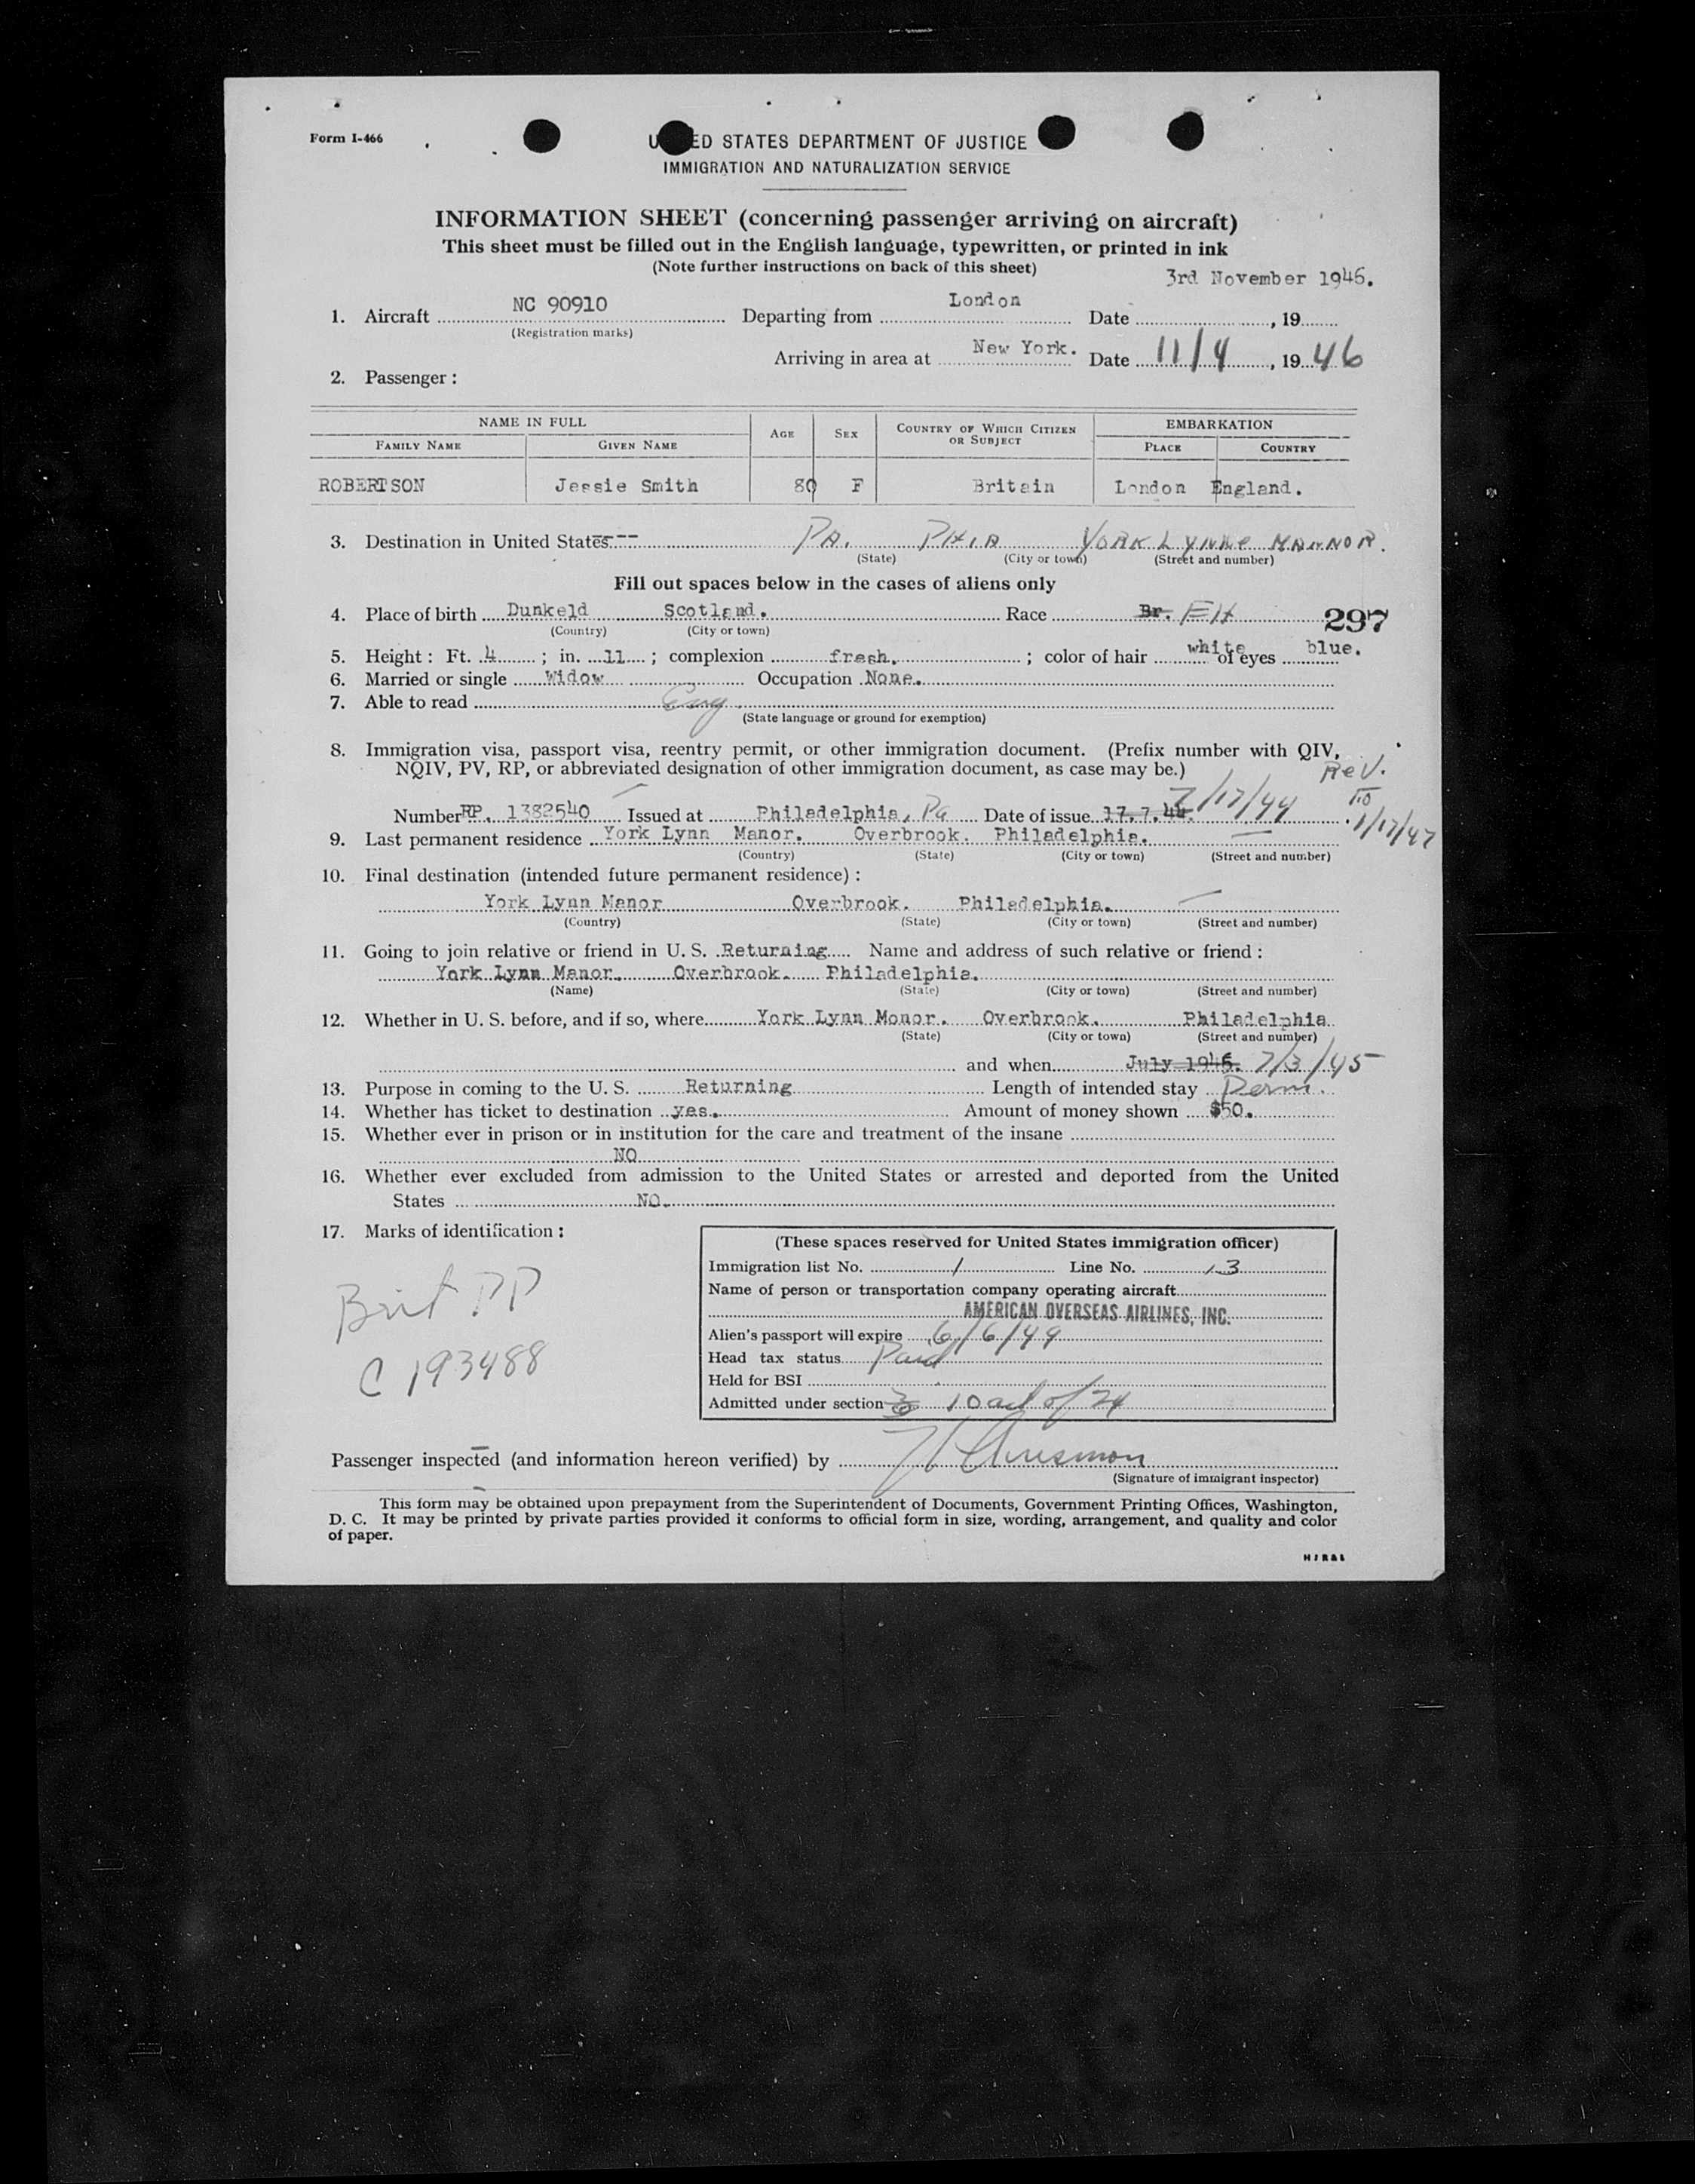 Form I-466
U ED STATES DEPARTMENT OF JUSTICE
IMMIGRATION AND NATURALIZATION SERVICE
INFORMATION SHEET (concerning passenger arriving on aircraft)
This sheet must be filled out in the English language, typewritten, or printed in ink
(Note further instructions on back of this sheet)
3rd November 1946.
1. Aircraft NC 90910 Departing from London Date , 19
(Registration marks)
Arriving in area at New York. Date 11/4, 1946
2. Passenger :
NAME IN FULL AGE SEX COUNTRY OF WHICH CITIZEN OR SUBJECT EMBARKATION
FAMILY NAME GIVEN NAME PLACE COUNTRY
ROBERTSON Jessie Smith 80 F Britain London England.
3. Destination in United States--- PA. PHIA YORK LYNNE MANNOR.
(State) (City or town) (Street and number)
Fill out spaces below in the cases of aliens only
4. Place of birth Dunkeld Scotland. Race Br. EH 297
(Country) (City or town)
5. Height : Ft. 4 ; in. 11 ; complexion fresh. ; color of hair white of eyes blue.
6. Married or single Widow Occupation None.
7. Able to read Eng
(State language or ground for exemption)
8. Immigration visa, passport visa, reentry permit, or other immigration document. (Prefix number with QIV,
NQIV, PV, RP, or abbreviated designation of other immigration document, as case may be.) ReV.
TO
Number RP. 1382540 Issued at Philadelphia, Pa Date of issue 17.7.44. 7/17/44 1/17/47
9. Last permanent residence York Lynn Manor. Overbrook. Philadelphia.
(Country) (State) (City or town) (Street and number)
10. Final destination (intended future permanent residence) :
York Lynn Manor Overbrook. Philadelphia.
(Country) (State) (City or town) (Street and number)
11. Going to join relative or friend in U. S. Returning Name and address of such relative or friend :
York Lynn Manor. Overbrook. Philadelphia.
(Name) (State) (City or town) (Street and number)
12. Whether in U. S. before, and if so, where York Lynn Monor. Overbrook. Philadelphia
(State) (City or town) (Street and number)
and when July 1945. 7/3/45
13. Purpose in coming to the U. S. Returning Length of intended stay Perm.
14. Whether has ticket to destination yes. Amount of money shown $50.
15. Whether ever in prison or in institution for the care and treatment of the insane
NO
16. Whether ever excluded from admission to the United States or arrested and deported from the United
States NO.
17. Marks of identification :
Brit PP
C 193488
(These spaces reserved for United States immigration officer)
Immigration list No. 1 Line No. 3
Name of person or transportation company operating aircraft
AMERICAN OVERSEAS AIRLINES, INC.
Alien's passport will expire 6/6/49
Head tax status Paid
Held for BSI
Admitted under section 10 act of 24
Passenger inspected (and information hereon verified) by
(Signature of immigrant inspector)
This form may be obtained upon prepayment from the Superintendent of Documents, Government Printing Offices, Washington,
D. C. It may be printed by private parties provided it conforms to official form in size, wording, arrangement, and quality and color
of paper.